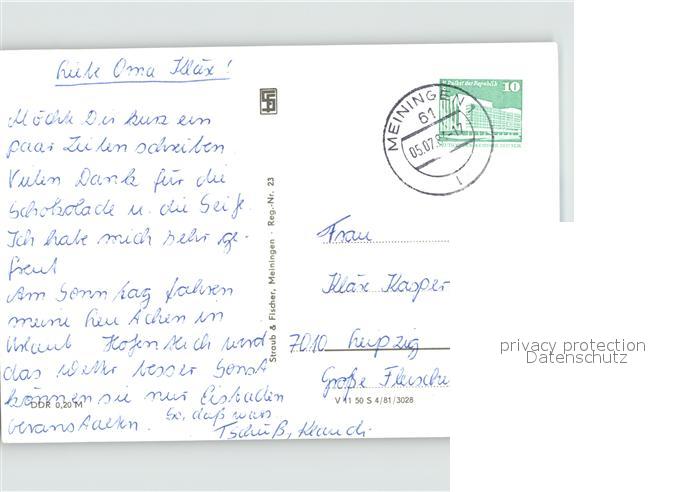 Liebe Oma Kläre!
Möchte Dir kurz ein
paar Zeilen schreiben.
Vielen Dank für die
Schokolade u. die Seife.
Ich habe mich sehr ge-
freut
Am Sonntag fahren
meine Leutchen in
Urlaub Hoffentlich wird
das Wetter besser Sonst
können sie nur Eisbaden
veranstalten. So, daß wars
Tschüß,
DDR 0,20 M
Straub & Fischer, Meiningen · Reg.-Nr. 23
MEININGEN 1
61
05.07.8 -17
Palast der Republik 10
Frau
Kläre Kasper
7010 Leipzig
Große
V 11 50 S 4/81/3028
privacy protection
Datenschutz